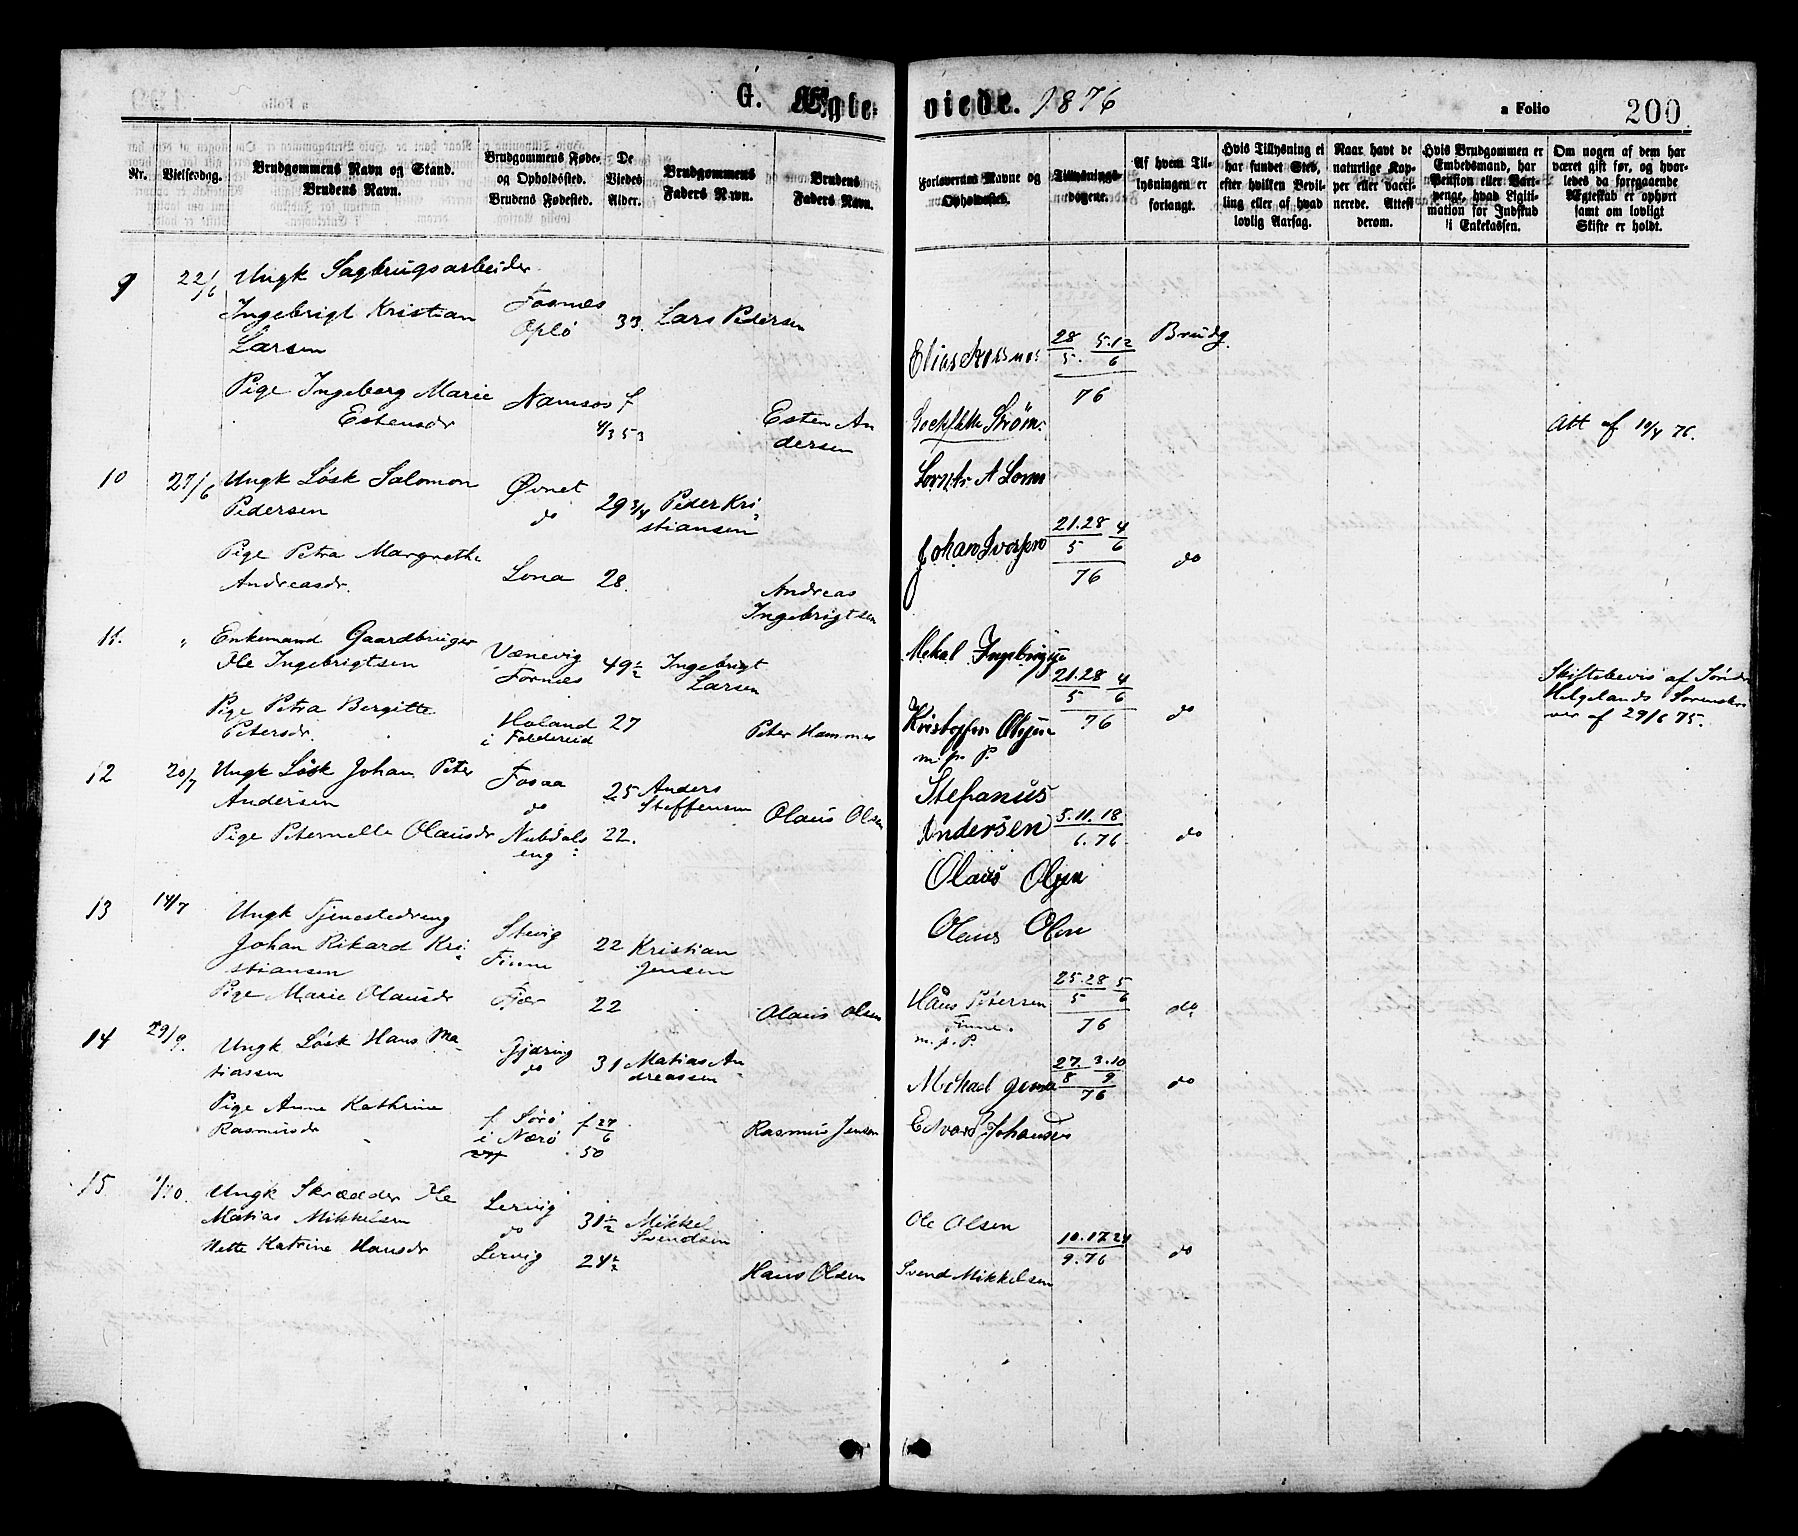 G. Ægte-viede. 1876
a Folio 200
Nr.
Vielsesdag.
Brudgommens Navn og Stand.
Brudens Navn.
Brudgommens Føde-
og Opholdssted.
Brudens Fødested.
De
Viedes
Alder.
Brudgommens
Faders Navn.
Brudens
Faders Navn.
Forloverens Navne og
Opholdssted.
Tillysnings-
dagene.
Af hvem Til-
lysningen er
forlangt.
Hvis Tillysning ei
har fundet Sted,
efter hvilken Bevil-
ling eller af hvad
lovlig Aarsag.
Naar havt de
naturlige Kop-
per eller vacci-
nerede. Attest
derom.
Hvis Brudgommen er
Embedsmand, har
Pension eller Vart-
penge, hvad Legiti-
mation for Indskud
i Enkekassen.
Om nogen af dem har
været gift før, og hvor-
ledes da foregaaende
Ægteskab er ophørt
samt om lovligt
Skifte er holdt.
9 22/6 Ungk Sagbrugsarbeider
Ingebrigt Kristian Fosnes
Larsen Oplø 33. Lars Pedersen
Elias 28/5. 5.12/6 76 Brudg.
Pige Ingeborg Marie Namsos f
Estensdr 4/3 53 Esten An
dersen
Strøm. Att af 10/4 76.
10 27/6 Ungk Løsk Salomon Øvnet
Pedersen do 29 3/4 Peder Kri-
stiansen
Pige Petra Margrethe
Andreasdr. Lona 28. Andreas
Ingebrigtsen
Johan 21.28/5 4/6 76 do
11. " Enkemand Gaardbruger
Ole Ingebrigtsen Vænevig
Fornes 49½ Ingebrigt
Larsen
Mekal
21.28/5 4/6 76 do
Skiftebevis af Søndr
Helgelands Sorenskri
ver af 29/6 75.
Pige Petra Bergitte
Petersdr. Holand
i Foldereid 27 Peter Hammer
Kristoffer
m. p. P.
12 20/7 Ungk Løsk Johan Peter Fosaa
Andersen do 25 Anders
Steffensen
Pige Peternelle Olausdr Nubdals
eng 22. Olaus Olsen
Stefanus
Andersen 5.11.18/6.76. do
Olaus Olsen
13 14/7 Ungk Tjenestedreng
Johan Rikard Kri-
stiansen Stevig
Finne 22 Kristian
Jensen
Pige Marie Olausdr Fjær 22 Olaus Olsen
Olaus Olsen
Hans Petersen
Finne.
m. p. P. 25.28/5 5/6 76 do
14 29/9. Ungk Løsk Hans Ma-
tiassen Gjæring
do 31 Matias An-
dreassen
Pige Anne Kathrine
Rasmusdr f. Sørø
i Nærø f 27/6 50 Rasmus Jensen
Mikael 27/8 3.10/9 76 do
Edvard Johansen
15 1/10. Ungk Skrædder Ole
Matias Mikkelsen Lervig
do 31½ Mikkel
Svendsen
Nette Katrine Hansdr Lervig 24½ Hans Olsen
Ole Olsen 10.17.24/9.76 do
Svend Mikkelsen